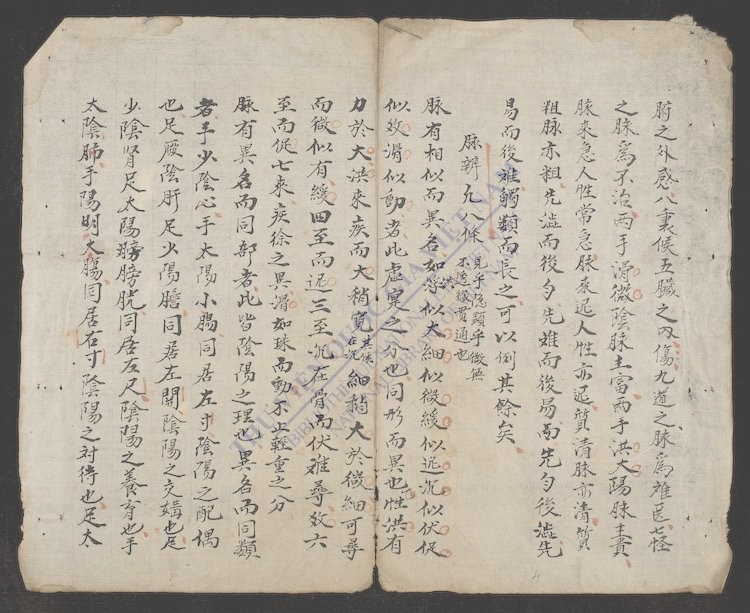 腑之外感八裏候五臟之內傷九道之脉爲难医七怪
之脉爲不治两手滑微陰脉主富西手洪大陽脉主貴
脉來急人性常急脉來迟人性亦迟質清脉亦清質
粗脉亦粗先澁而後匀先难而後易而先匀後澁先
易而後难觸類而长之可以例其餘矣
脉辨凡八條見乎隐顕乎微無不透徹貫通也
脉有相似而異名如芤似大細似微緩似迟沉似伏促
似数滑似動者此虚寔之分也同形而異也性洪有
力於大洪來疾而大稍寬其候在沉細稍大於微細可尋
而微似有緩四至而迟三至沉在骨而伏难尋数六
至而促七來疾徐之異滑如珠而動不止輕重之分
脉有異名而同部者此皆陰陽之理也異名而同類
者手少陰心手太陽小腸同居左寸陰陽之配偶
也足厥陰肝足少陽膽同居左関陰陽之交媾也足
少陰腎足太陽膀胱同居左尺陰陽之養育也手
太陰肺手陽明大腸同居右寸陰陽之対待也足太
THƯ VIỆN QUỐC GIA VIỆT NAM